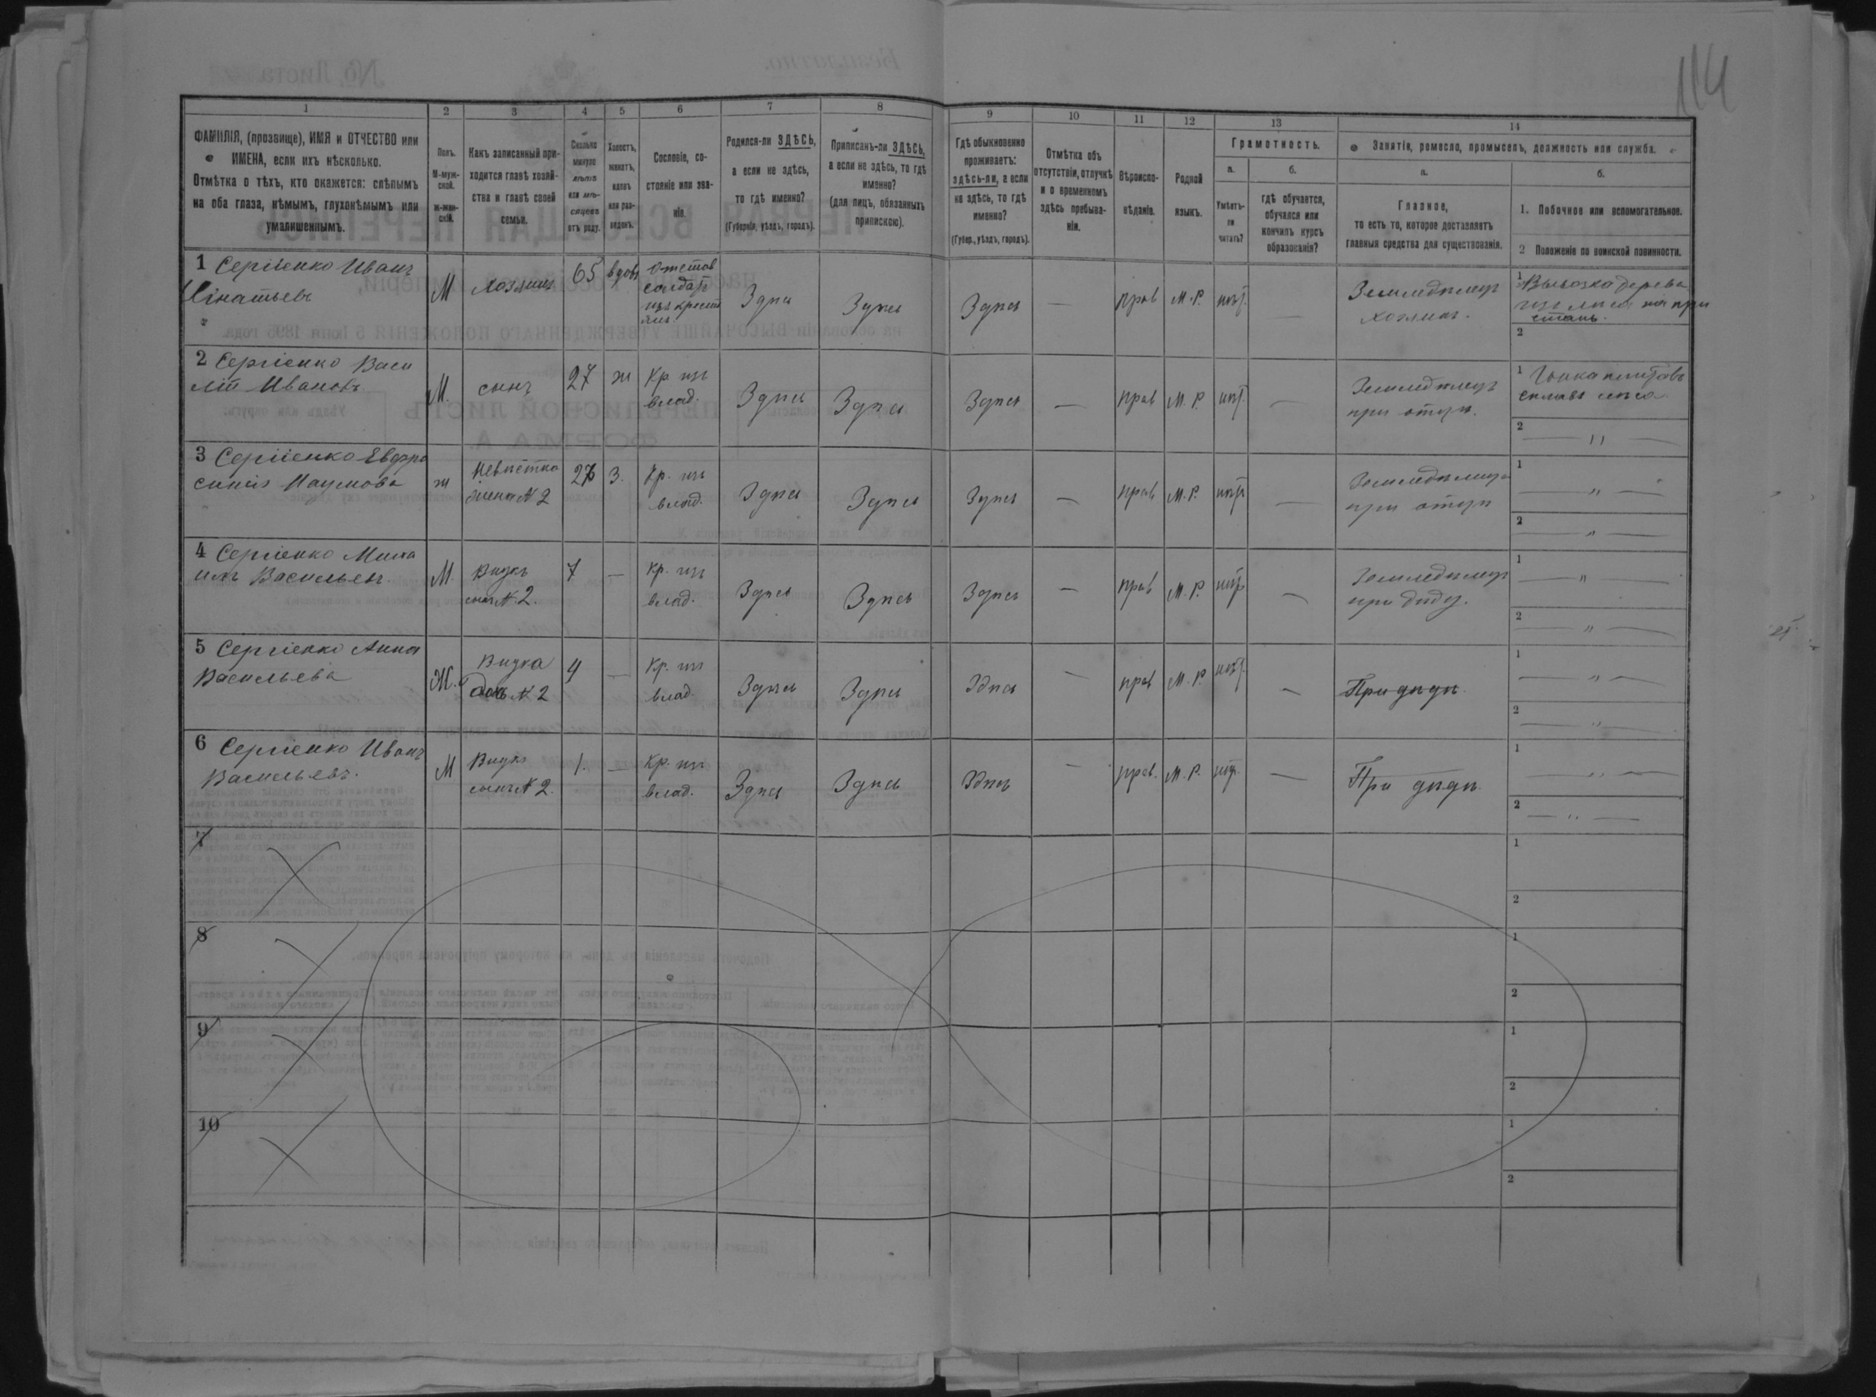 114
1 2 3 4 5 6 7 8 9 10 11 12 13 14
ФАМИЛІЯ, (прозвище), ИМЯ и ОТЧЕСТВО или
ИМЕНА, если ихъ нѣсколько.
Отмѣтка о тѣхъ, кто окажется: слѣпымъ
на оба глаза, нѣмымъ, глухонѣмымъ или
умалишеннымъ.
Полъ.
М-муж-
ской.
Ж-жен-
скій.
Какъ записанный при-
ходится главѣ хозяй-
ства и главѣ своей
семьи.
Сколько
минуло
лѣтъ
или мѣ-
сяцевъ
отъ роду.
Холостъ,
женатъ,
вдовъ
или раз-
веденъ.
Сословіе, со-
стояніе или зва-
ніе.
Родился-ли ЗДѢСЬ,
а если не здѣсь,
то гдѣ именно?
(Губернія, уѣздъ, городъ).
Приписанъ-ли ЗДѢСЬ,
а если не здѣсь, то гдѣ
именно?
(для лицъ, обязанныхъ
припискою).
Гдѣ обыкновенно
проживаетъ:
здѣсь-ли, а если
не здѣсь, то гдѣ
именно?
(Губер., уѣздъ, городъ).
Отмѣтка объ
отсутствіи, отлучкѣ
и о временномъ
здѣсь пребыва-
ніи.
Вѣроиспо-
вѣданіе.
Родной
языкъ.
Грамотность.
а.
Умѣетъ-
ли
читать?
б.
гдѣ обучается,
обучался или
кончилъ курсъ
образованія?
Занятіе, ремесло, промыселъ, должность или служба.
а.
Главное,
то есть то, которое доставляетъ
главныя средства для существованія.
б.
1. Побочное или вспомогательное.
2 Положеніе по воинской повинности.
1 Сергіенко Иванъ
Игнатьевъ
М Хозяинъ 65 вдовъ
отстав
солдат
изъ крестьянъ
Здѣсь Здѣсь Здѣсь — прав М.Р. нѣт —
Земледѣлецъ
хозяинъ.
1 Вывозка дерева
изъ лѣса на при
стань.
2
2 Сергіенко Васи
лій Ивановъ
М. сынъ 27 ж
Кр. изъ
влад.
Здѣсь Здѣсь Здѣсь — прав М.Р. нѣт —
Земледѣлецъ
при отцѣ.
1 Гонка плотовъ
сплавъ лѣса
2 — " —
3 Сергіенко Евфро
синія Наумова
ж
Невѣстка
жена №2
27 З.
Кр. изъ
влад.
Здѣсь Здѣсь Здѣсь — прав М.Р. нѣт —
Земледѣлица
при отцѣ
1 — " —
2 — " —
4 Сергіенко Миха
илъ Васильевъ
М.
Внукъ
сынъ №2.
7 —
Кр. изъ
влад.
Здѣсь Здѣсь Здѣсь — прав М.Р. нѣт —
Земледѣлецъ
при дѣду.
1 — " —
2 — " —
5 Сергіенко Анна
Васильева
Ж.
Внука
дочь №2
4 —
Кр. изъ
влад.
Здѣсь Здѣсь Здѣсь — прав М.Р. нѣт —
При дѣдѣ
1 — " —
2 — " —
6 Сергіенко Иванъ
Васильевъ.
М
Внукъ
сынъ №2.
1. —
Кр. изъ
влад.
Здѣсь Здѣсь Здѣсь — прав. М.Р. нѣт. —
При дѣдѣ
1 — " —
2 — " —
7
1
2
8
1
2
9
1
2
10
1
2